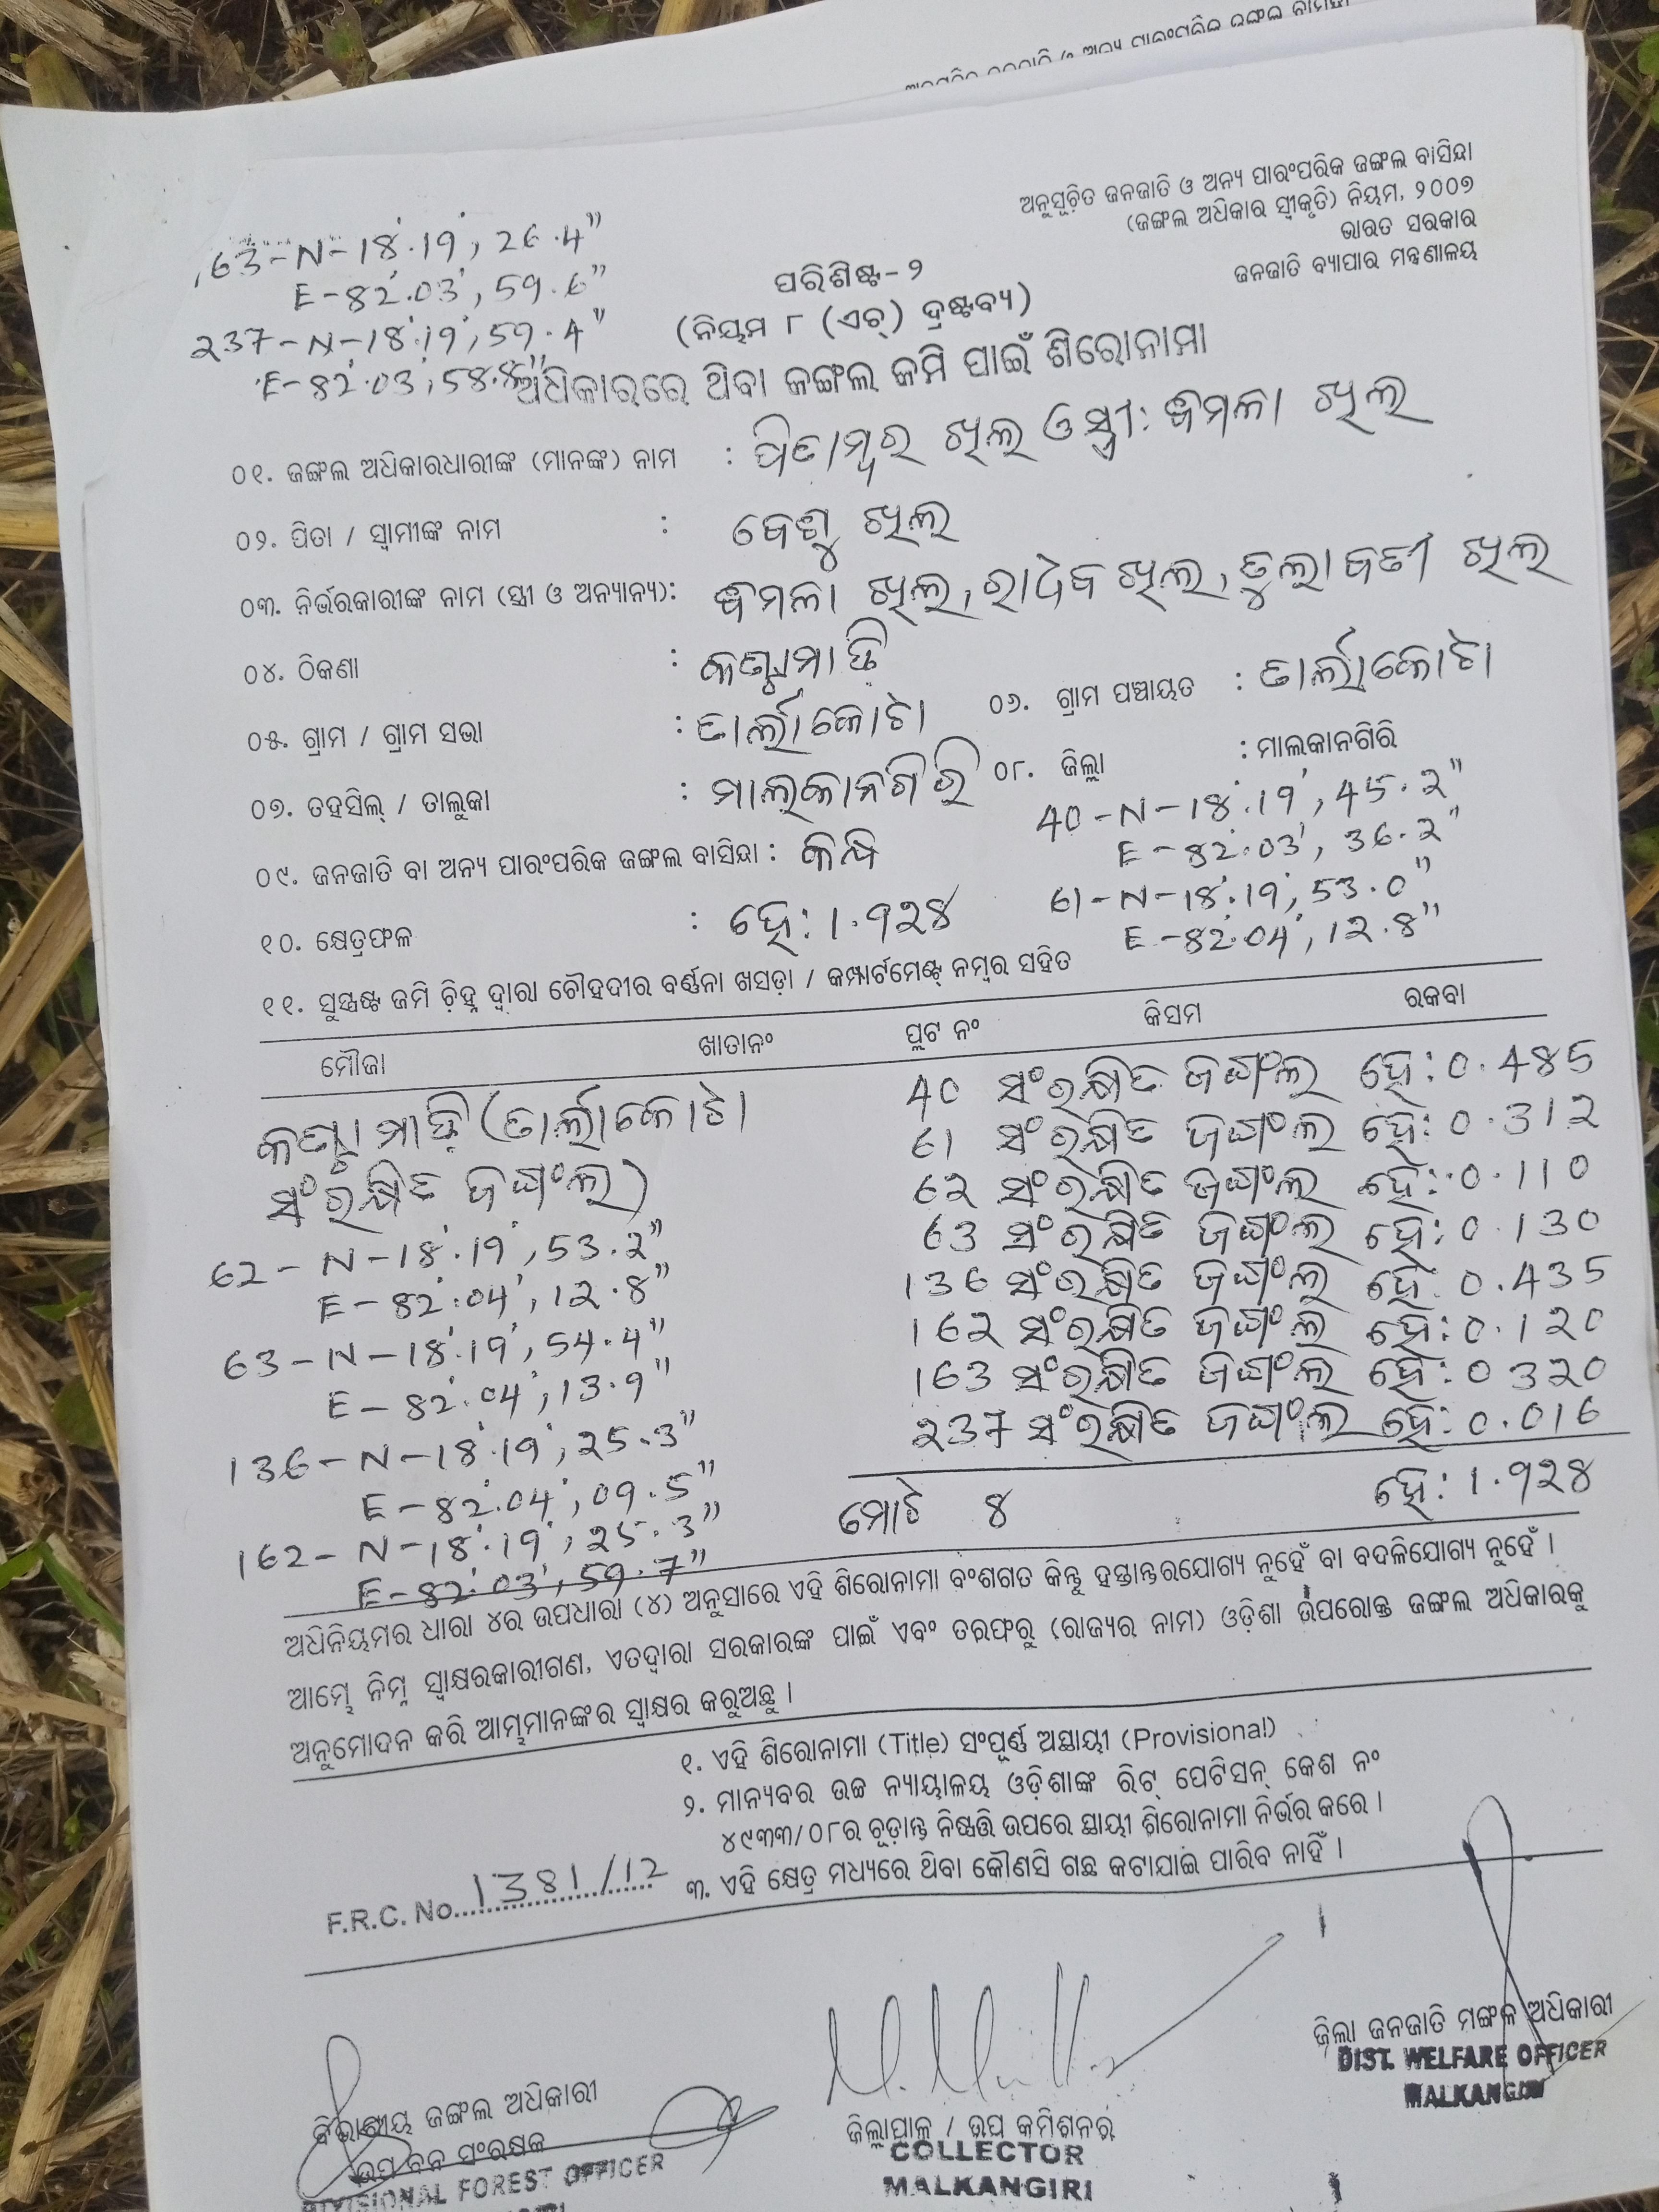 ଅନୁସୂଚିତ ଜନଜାତି ଓ ଅନ୍ୟ ପାରଂପରିକ ଜଙ୍ଗଲ ବାସିନ୍ଦା
(ଜଙ୍ଗଲ ଅଧିକାର ସ୍ୱୀକୃତି) ନିୟମ, ୨୦୦୭
ଭାରତ ସରକାର
ଜନଜାତି ବ୍ୟାପାର ମନ୍ତ୍ରଣାଳୟ
163-N-18°.19', 26.4"
E-82°.03', 59.6"
237-N-18°.19', 59.4"
E-82°.03', 58.8"
ପରିଶିଷ୍ଟ-୨
(ନିୟମ ୮ (ଏଚ୍) ଦ୍ରଷ୍ଟବ୍ୟ)
ଅଧିକାରରେ ଥିବା ଜଙ୍ଗଲ ଜମି ପାଇଁ ଶିରୋନାମା
୦୧. ଜଙ୍ଗଲ ଅଧିକାରଧାରୀଙ୍କ (ମାନଙ୍କ) ନାମ : ପିତାମ୍ବର ଖିଲ ଓ ସ୍ତ୍ରୀ: ଖିଲ
୦୨. ପିତା / ସ୍ୱାମୀଙ୍କ ନାମ : ଖିଲ
୦୩. ନିର୍ଭରକାରୀଙ୍କ ନାମ (ସ୍ତ୍ରୀ ଓ ଅନ୍ୟାନ୍ୟ): ଖିଲ, ଖିଲ, ଖିଲ
୦୪. ଠିକଣା :
୦୫. ଗ୍ରାମ / ଗ୍ରାମ ସଭା : ତାର୍ଲାକୋଟା
୦୬. ଗ୍ରାମ ପଞ୍ଚାୟତ : ତାର୍ଲାକୋଟା
୦୭. ତହସିଲ୍ / ତାଲୁକା : ମାଲକାନଗିରି
୦୮. ଜିଲ୍ଲା : ମାଲକାନଗିରି
40-N-18°.19', 45.2"
E-82°.03', 36.2"
୦୯. ଜନଜାତି ବା ଅନ୍ୟ ପାରଂପରିକ ଜଙ୍ଗଲ ବାସିନ୍ଦା : କନ୍ଧ
61-N-18°.19', 53.0"
E-82°.04', 12.8"
୧୦. କ୍ଷେତ୍ରଫଳ : ହେ: 1.୨୨୪
୧୧. ସୁସ୍ପଷ୍ଟ ଜମି ଚିହ୍ନ ଦ୍ୱାରା ଚୌହଦୀର ବର୍ଣ୍ଣନା ଖସଡ଼ା / କମ୍ପାର୍ଟମେଣ୍ଟ୍ ନମ୍ବର ସହିତ
ମୌଜା ଖାତାନଂ ପ୍ଲଟ ନଂ କିସମ ରକବା
(ତାର୍ଲାକୋଟା
ସଂରକ୍ଷିତ ଜଙ୍ଗଲ)
40 ସଂରକ୍ଷିତ ଜଙ୍ଗଲ ହେ: 0.485
61 ସଂରକ୍ଷିତ ଜଙ୍ଗଲ ହେ: 0.312
62 ସଂରକ୍ଷିତ ଜଙ୍ଗଲ ହେ: 0.110
63 ସଂରକ୍ଷିତ ଜଙ୍ଗଲ ହେ: 0.130
136 ସଂରକ୍ଷିତ ଜଙ୍ଗଲ ହେ: 0.435
162 ସଂରକ୍ଷିତ ଜଙ୍ଗଲ ହେ: 0.120
163 ସଂରକ୍ଷିତ ଜଙ୍ଗଲ ହେ: 0 320
237 ସଂରକ୍ଷିତ ଜଙ୍ଗଲ ହେ: 0.016
62-N-18°.19', 53.2"
E-82°.04', 12.8"
63-N-18°.19', 54.4"
E-82°.04', 13.9"
136-N-18°.19', 25.3"
E-82°.04', 09.5"
162-N-18°.19', 25.3"
E-82°.03', 59.7"
ମୋଟ ୪ ହେ: 1.୨୨୪
ଅଧିନିୟମର ଧାରା ୪ର ଉପଧାରା (୪) ଅନୁସାରେ ଏହି ଶିରୋନାମା ବଂଶଗତ କିନ୍ତୁ ହସ୍ତାନ୍ତରଯୋଗ୍ୟ ନୁହେଁ ବା ବଦଳିଯୋଗ୍ୟ ନୁହେଁ ।
ଆମ୍ଭେ ନିମ୍ନ ସ୍ୱାକ୍ଷରକାରୀଗଣ, ଏତଦ୍ୱାରା ସରକାରଙ୍କ ପାଇଁ ଏବଂ ତରଫରୁ (ରାଜ୍ୟର ନାମ) ଓଡ଼ିଶା ଉପରୋକ୍ତ ଜଙ୍ଗଲ ଅଧିକାରକୁ
ଅନୁମୋଦନ କରି ଆମ୍ଭମାନଙ୍କର ସ୍ୱାକ୍ଷର କରୁଅଛୁ ।
୧. ଏହି ଶିରୋନାମା (Title) ସଂପୂର୍ଣ୍ଣ ଅସ୍ଥାୟୀ (Provisional)
୨. ମାନ୍ୟବର ଉଚ୍ଚ ନ୍ୟାୟାଳୟ ଓଡ଼ିଶାଙ୍କ ରିଟ୍ ପେଟିସନ୍ କେଶ ନଂ
୪୯୩୩/୦୮ର ଚୂଡ଼ାନ୍ତ ନିଷ୍ପତ୍ତି ଉପରେ ସ୍ଥାୟୀ ଶିରୋନାମା ନିର୍ଭର କରେ ।
୩. ଏହି କ୍ଷେତ୍ର ମଧ୍ୟରେ ଥିବା କୌଣସି ଗଛ କଟାଯାଇ ପାରିବ ନାହିଁ ।
F.R.C. No. 1381/12
ଜିଲା ଜନଜାତି ମଙ୍ଗଳ ଅଧିକାରୀ
DIST. WELFARE OFFICER
MALKANGIRI
ବିଭାଗୀୟ ଜଙ୍ଗଲ ଅଧିକାରୀ
ଉପ ବନ ସଂରକ୍ଷକ
DIVISIONAL FOREST OFFICER
ଜିଲ୍ଲାପାଳ / ଉପ କମିଶନର
COLLECTOR
MALKANGIRI